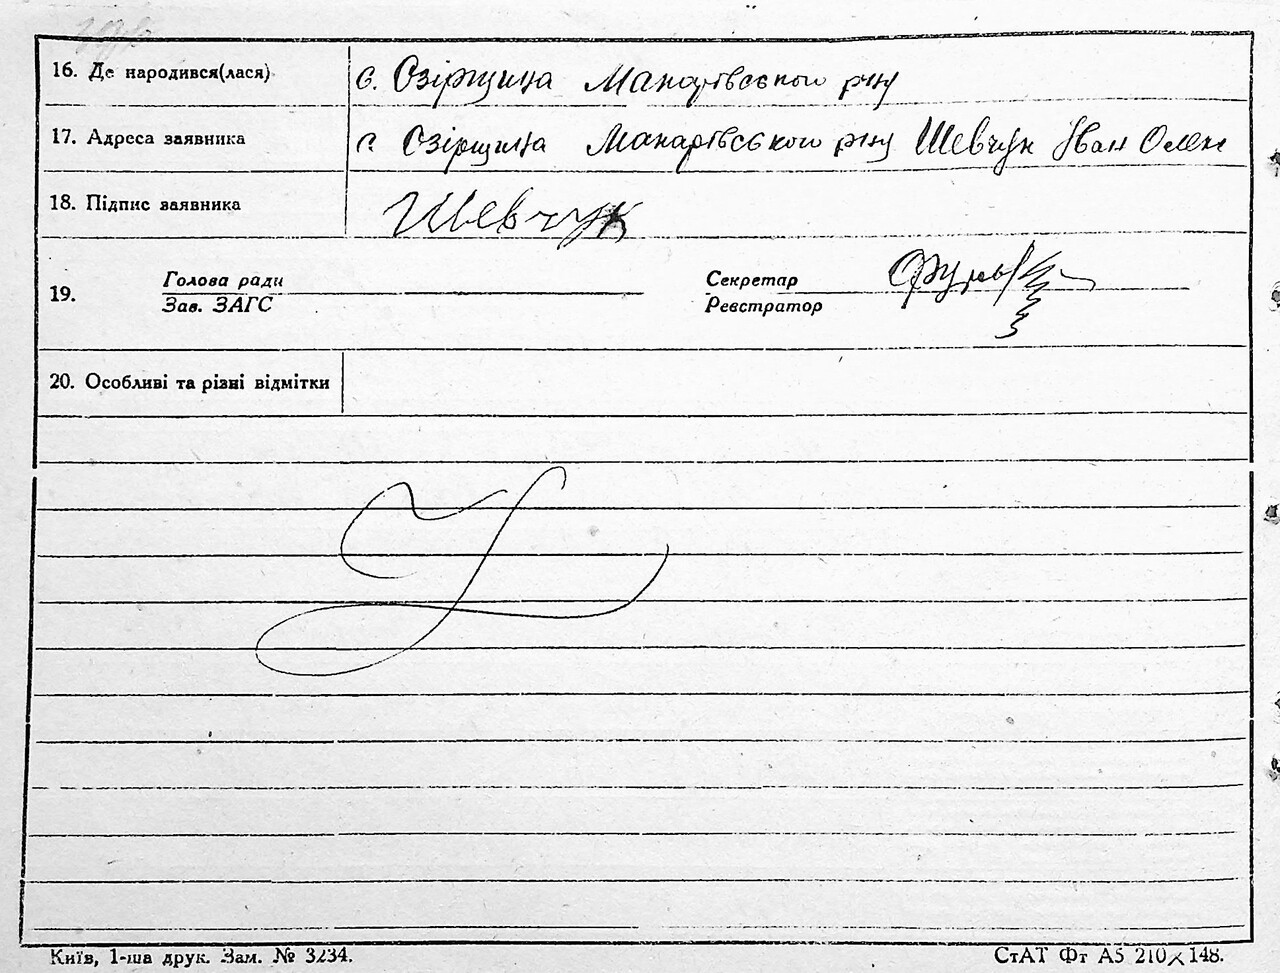 16. Де народився(лася) с. Озірщина Макарівського р-ну
17. Адреса заявника с. Озірщина Макарівського р-ну Шевчук Іван Олек
18. Підпис заявника Шевчук
Голова ради Секретар
19.
Зав. ЗАГС Реєстратор
20. Особливі та різні відмітки
Київ, 1-ша друк. Зам. № 3234. СтАТ Фт А5 210×148.